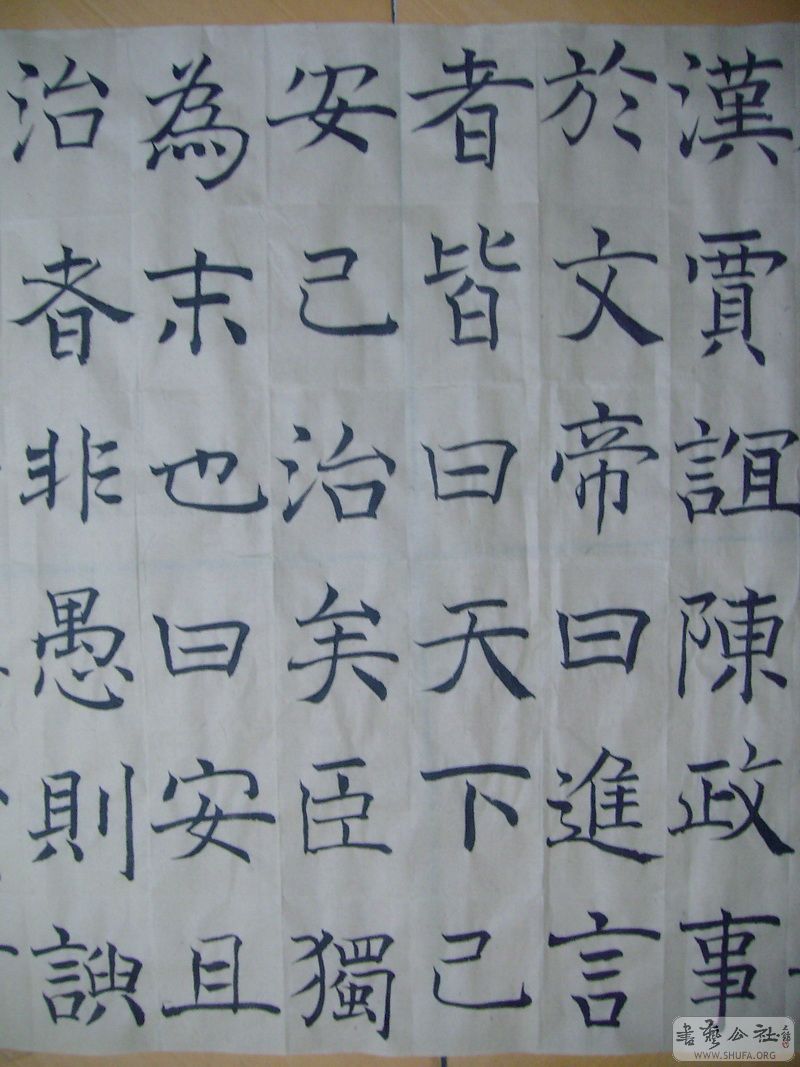 漢賈誼陳政事
於文帝曰進言
者皆曰天下已
安已治矣臣獨
為末也曰安且
治者非愚則諛
書藝公社
WWW.SHUFA.ORG